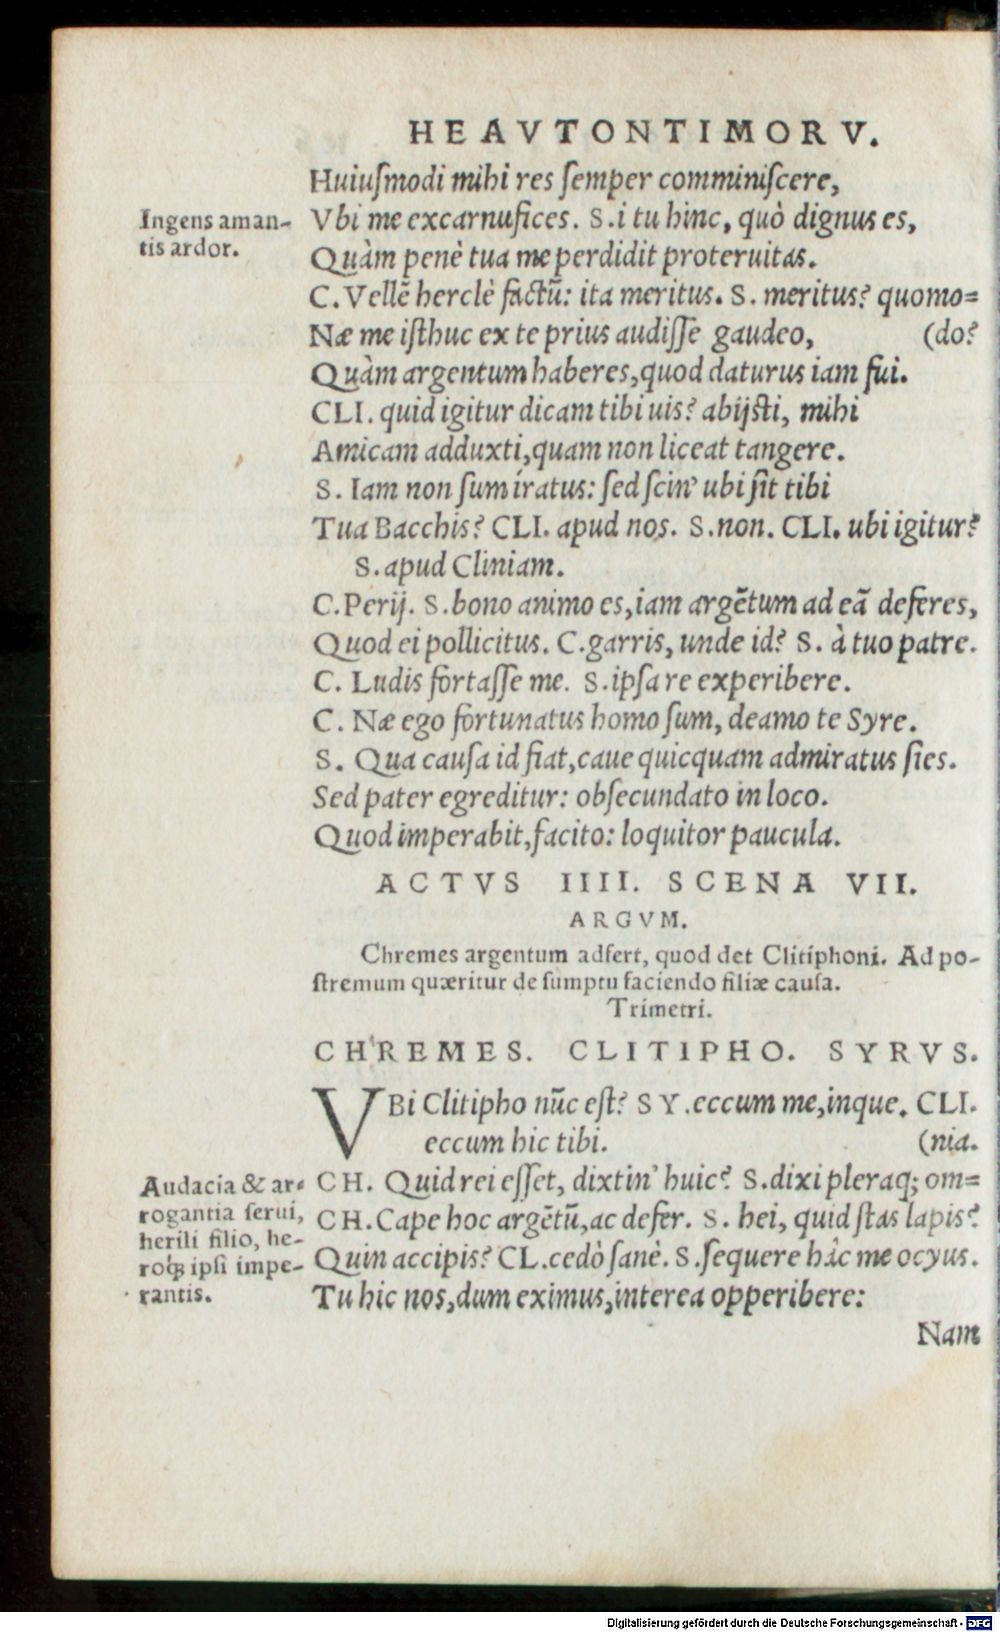 HEAVTONTIMORV.
Huiuſmodi mihi res ſemper comminiſcere,
Ingens aman-
tis ardor.
Vbi me excarnufices. S. i tu hinc, quò dignus es,
Quàm penè tua me perdidit proteruitas.
C. Vellẽ herclè factũ: ita meritus. S. meritus? quomo=
Næ me iſthuc ex te prius audiſſe gaudeo, (do?
Quàm argentum haberes, quod daturus iam fui.
CLI. quid igitur dicam tibi uis? abijſti, mihi
Amicam adduxti, quam non liceat tangere.
S. Iam non ſum iratus: ſed ſcin' ubi ſit tibi
Tua Bacchis? CLI. apud nos. S. non. CLI. ubi igitur?
S. apud Cliniam.
C. Perij. S. bono animo es, iam argẽtum ad eã deferes,
Quod ei pollicitus. C. garris, unde id? S. à tuo patre.
C. Ludis fortaſſe me. S. ipſa re experibere.
C. Næ ego fortunatus homo ſum, deamo te Syre.
S. Qua cauſa id fiat, caue quicquam admiratus ſies.
Sed pater egreditur: obſecundato in loco.
Quod imperabit, facito: loquitor paucula.
ACTVS IIII. SCENA VII.
ARGVM.
Chremes argentum adfert, quod det Clitiphoni. Ad po-
ſtremum quæritur de ſumptu faciendo filiæ cauſa.
Trimetri.
CHREMES. CLITIPHO. SYRVS.
VBi Clitipho nũc eſt? SY. eccum me, inque. CLI.
eccum hic tibi. (nia.
CH. Quid rei eſſet, dixtin' huic? S. dixi pleraq; om=
CH. Cape hoc argẽtũ, ac defer. S. hei, quid ſtas lapis?
Quin accipis? CL. cedò ſanè. S. ſequere hàc me ocyus.
Tu hic nos, dum eximus, interea opperibere:
Audacia & ar-
rogantia ſerui,
herili filio, he-
roq; ipſi impe-
rantis.
Nam
Digitalisierung gefördert durch die Deutsche Forschungsgemeinschaft - DFG